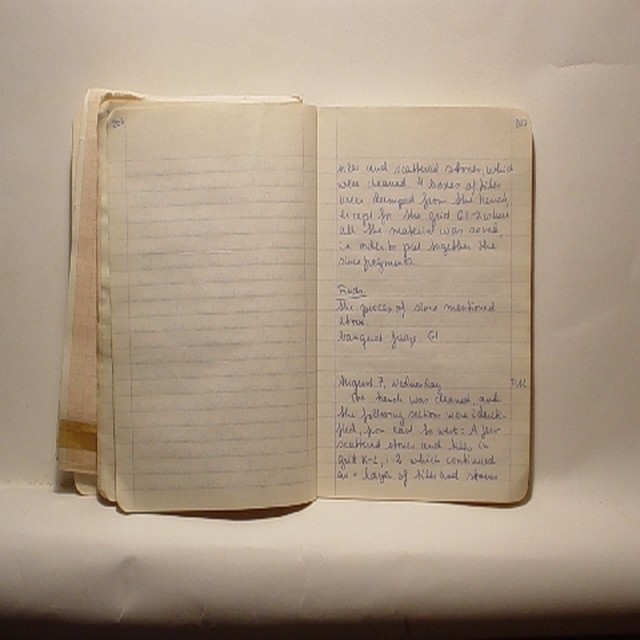 tiles and scattered stones which
were cleaned. 4 boxes of tiles
were dumped from the trench,
except for the grid G1-2 where
all the material was saved,
in order to put together the
sime fragments.
Finds
The pieces of sime mentioned
above.
August 7, Wednesday
The trench was cleaned, and
the following section were identi-
fied, from east to west: A few
scattered stones and tiles, in
grit K-L, 1-2 which continued
as a layer of tiles and stones